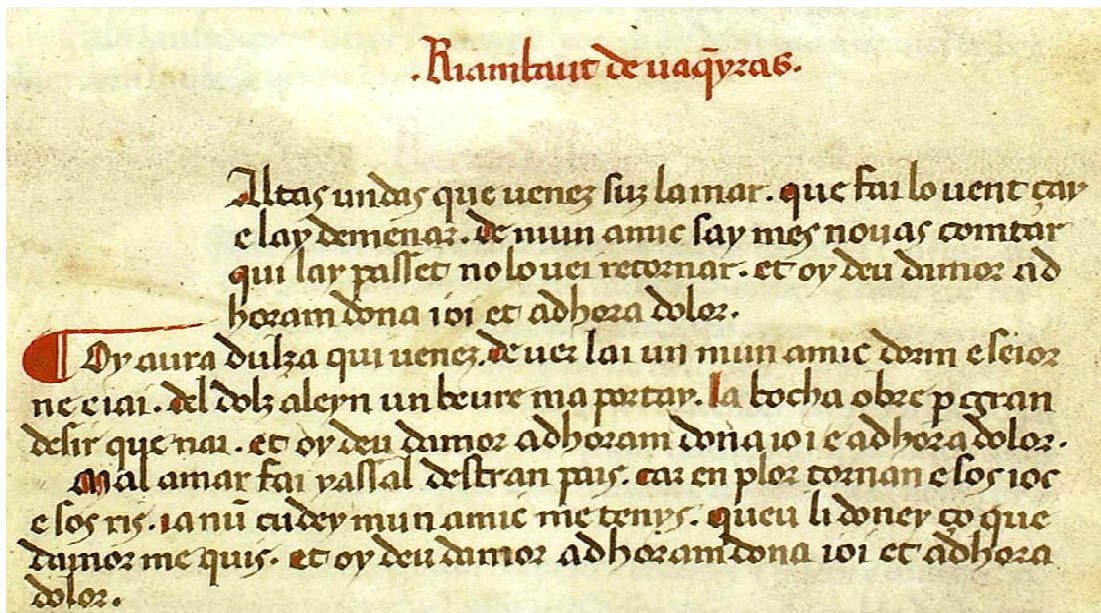 .Riambaut de uaq̄yras.
Altas undas que uenez suz la mar. que fai lo uent çay
e lay demenar. de mun amic say mes nouas comtar
qui lay passet no lo uei retornar. et oy deu damor ad
horam dona ioi et ad hora dolor.
Oy aura dulza qui uenez. de uer lai un mun amic dorm e seior
ne e iai. del dolz aleyn un beure ma portay. la bocha obre p gran
desir que nai. et oy deu damor ad horam dona ioi e ad hora dolor.
Mal amar fai uassal destran pais. car en plor tornan e sos ioc
e sos ris. ia nū cudey mun amic me trays. queu li doney ço que
damor me quis. et oy deu damor ad horam dona ioi et ad hora
dolor.